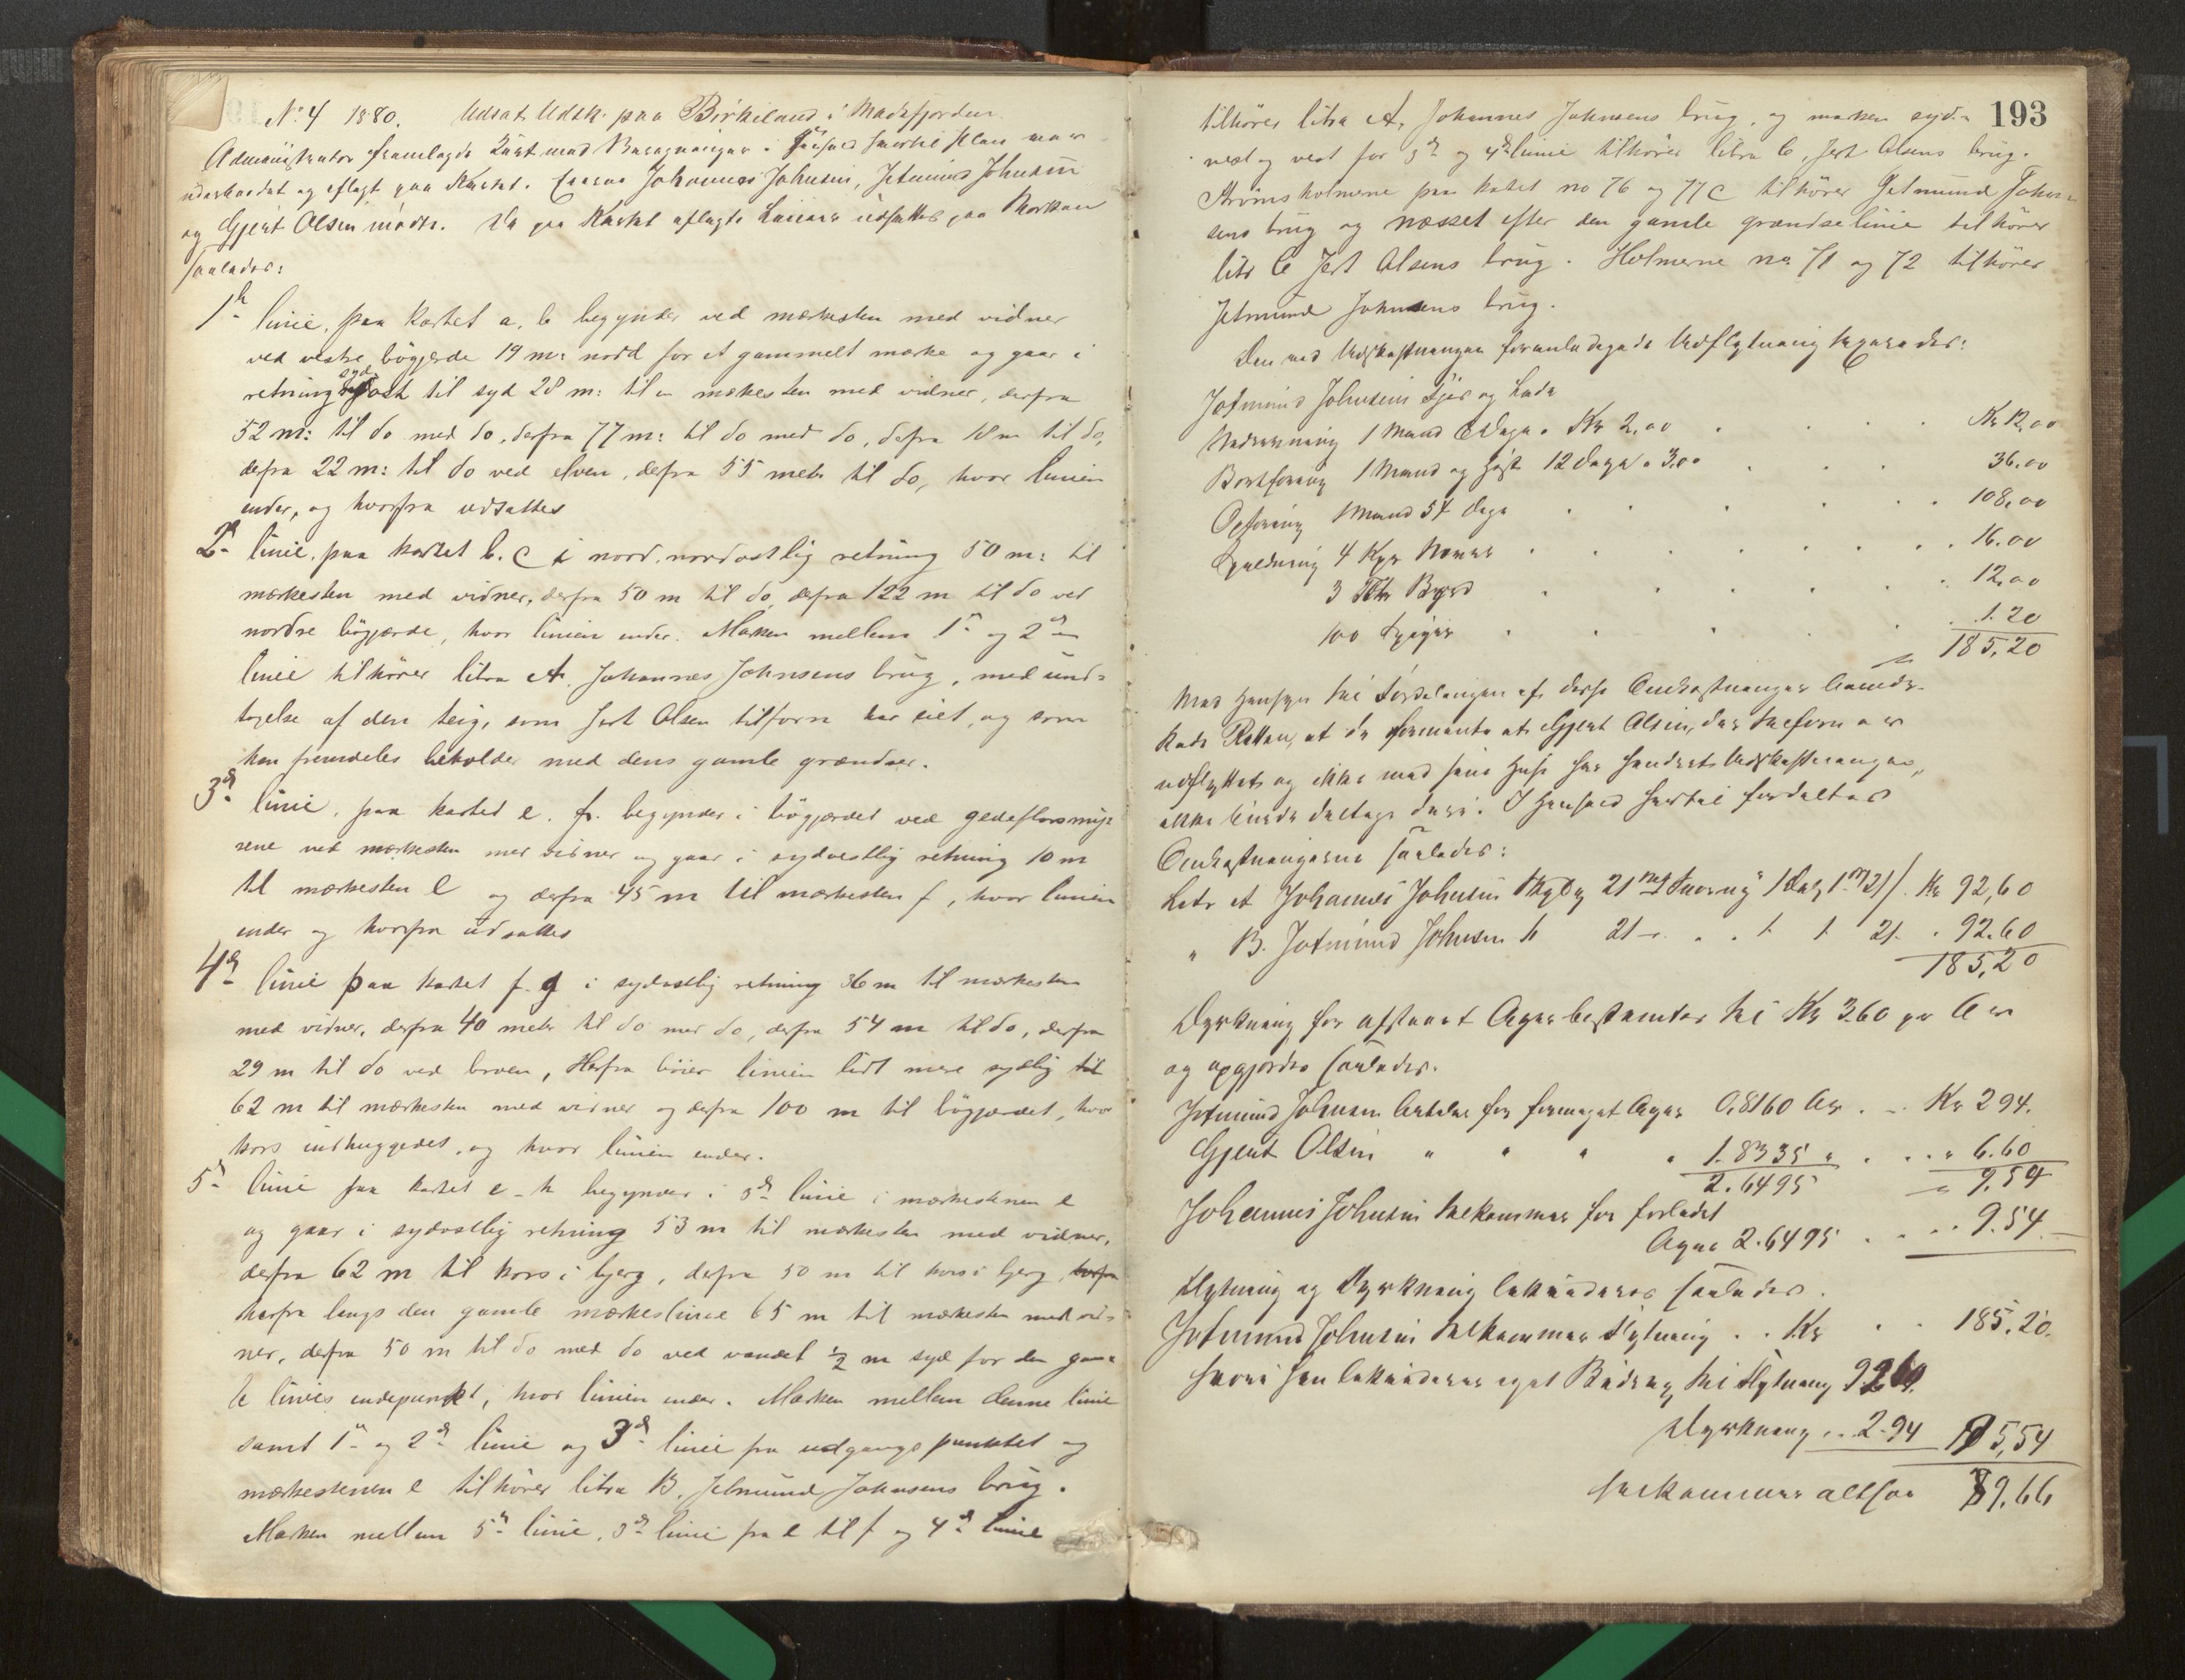 No: 4 1880. Udsat Udsk. paa Birkeland i Madsfjorden
Administrator fremlagde Kart med Beregninger i Henhold hvortil Plan var
udarbeidet og aflagt paa Kartet. Eierne Johannes Johnsen, Jetmund Johnsen
og Gjert Olsen mødte. De paa Kartet aflagte Linier udsattes paa Marken
saaledes:
1ste linie, paa kartet a, b begynder ved mærkesten med vidner
ved vestre bøgjerde 19 m: nord for et gammelt mærke og gaar i
retning syd ost til syd 28 m: til en mærkesten med vidner, derfra
52 m: til do med do, derfra 77 m: til do med do, derfra 18 m til do,
derfra 22 m: til do ved elven, derfra 55 meter til do, hvor linien
ender, og hvorfra udsattes
2den linie, paa kartet b. c i nord. nordostlig retning 50 m: til
mærkesten med vidner, derfra 50 m til do, derfra 122 m til do ved
nordre bøgjærde, hvor linien ender. Marken mellem 1ste og 2den
linie tilhører litra A. Johannes Johnsens brug, med und=
tagelse af den teig, som Jert Olsen tilforn har eiet, og som
han fremdeles beholder med dens gamle grændser.
3die linie, paa kartet e. f. begynder i bøgjærdet ved gedeflorsmyr
rene ved mærkesten med vidner og gaar i sydvestlig retning 10 m
til mærkesten e og derfra 45 m til mærkesten f, hvor linien
ender og hvorfra udsattes
4de linie paa kartet f. g i sydostlig retning 36 m til mærkesten
med vidner, derfra 40 meter til do med do, derfra 54 m til do, derfra
29 m til do ved broen, Herfra bøier linien lidt mere sydlig til
62 m til mærkesten med vidner og derfra 100 m til bøgjærdet, hvor
kors indhuggedes, og hvor linien ender.
5te linie paa kartet e - h begynder i 3die linie i mærkestenen e
og gaar i sydostlig retning 53 m til mærkesten med vidner,
derfra 62 m til kors i bjerg, derfra 50 m til kors i bjerg, herfra
herfra langs den gamle mærkeslinie 65 m til mærkesten med vid=
ner, derfra 50 m til do med do ved vandet ½ m syd for den gam=
le linies endepunkt, hvor linien ender. Marken mellem denne linie
samt 1ste og 2den linie og 3die linie fra udgangspunktet og
mærkestenen e tilhører litra B. Jetmund Johnsens brug.
Marken mellem 5te linie, 3die linie fra e til f og 4de linie
193
tilhører litra A, Johannes Johnsens brug, og marken syd=
vest og vest for 3die og 4de linie tilhører litra C, Jert Olsens brug.
Strømsholmerne paa kartet no 76 og 77 C tilhører Jetmund John=
sens brug og næsset efter den gamle grændselinie tilhører
litr C Jert Olsens brug. Holmerne no 71 og 72 tilhører
Jetmund Johnsens brug.
Den ved Udskiftningen foranledigede Udflytning beregnedes:
Jetmund Johnsens Fjøs og Lade
Nedrivning 1 Mand 6 Dage a Kr 2.00 . . . Kr 12,00
Bortføring 1 Mand og Hest 12 Dage a 3.00 . . . 36.00
Opføring 1 Mand 54 Dage . . . 108,00
4 Kpr Næver . . . 16.00
3 Bord . . . 12,00
100 Spiger . . . 1.20
185,20
Med Hensyn til Fordelingen af disse Omkostninger bemær-
kede Retten, at de formente at Gjert Olsen, der tilforn er
udflyttet og ikke med sine Huse har hindret Udskiftningen,
ikke burde deltage deri. I Henhold hertil fordeltes
Omkostningerne saaledes:
Litr A Johannes Johnsen 21 Kr 92,60
" B. Jetmund Johnsen 21 . . 1 1 21 . 92.60
185,20
Dyrkning for afstaaet Ager bestemtes til Kr 3.60 pr Ar
og opgjordes saaledes.
Jetmund Johnsen betaler for formeget Ager 0,8160 Ar . . Kr 2.94.
Gjert Olsen " " " " 1.8335 " . . . " 6.60
2.6495 " 9.54
Johannes Johnsen tilkommer for forladet
Ager 2.6495 . . . 9.54
Flytning og Dyrkning likvideres saaledes.
Jetmund Johnsen tilkommer Flytning . . Kr . . 185,20.
hvori han likviderer eget Bidrag til Flytning 92.60.
Dyrkning . . 2.94 95,54
tilkommer altsaa 89,66